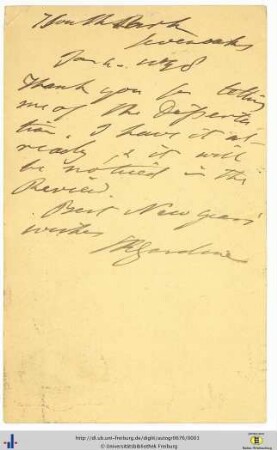 7 South Park
Sevenoaks
Jan
Thank you for telling
me of the Disserta-
tion. I have it al-
ready, & it will
be noticed in the
Review
Best New Years'
wishes
SRGardiner
http://dl.ub.uni-freiburg.de/diglit/autogr0676/0003
© Universitätsbibliothek Freiburg